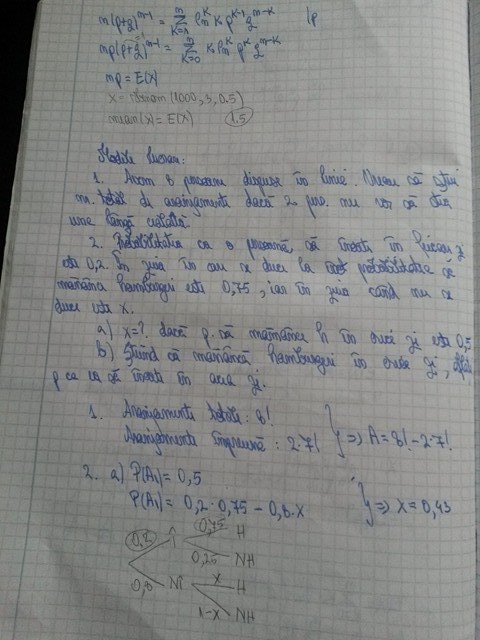 n(p+q)^{n-1} = \sum_{k=1}^{n} k C_n^k p^{k-1} q^{n-k} |p
np(p+q)^{n-1} = \sum_{k=0}^{n} k C_n^k p^k q^{n-k}
np = E(X)
x = rbinom(1000, 3, 0.5)
mean(x) = E(X) 1.5
1. Avem 8 persoane dispuse în linie. Vrem să știm
nr. total de aranjamente dacă 2 pers. nu vor să stea
una lângă cealaltă.
2. Probabilitatea ca o persoană să înoate în fiecare zi
este 0,2. În ziua în care se duce la probabilitatea să
mănânce hamburger este 0,75, iar în ziua când nu se
duce este x.
a) x=? dacă p. să mănânce h în orice zi este 0,5
b) Știind că mănâncă hamburger în orice zi,
p ca ea să înoate în acea zi.
1. Aranjamente totale: 8!
Aranjamente împreună: 2·7! } => A = 8! - 2·7!
2. a) P(A₁) = 0,5
P(A₁) = 0,2·0,75 - 0,8·x } => x = 0,43
0,2 Î 0,75 H
0,25 NH
0,8 NÎ x H
1-x NH